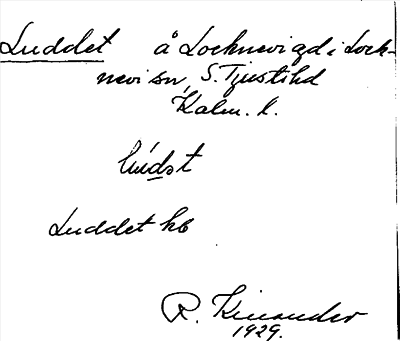 Luddet å Locknevi gd i Lock-
nevi sn, S. Tjust hd
Kalm. l.
Luddet kb
R. Kinander
1929.